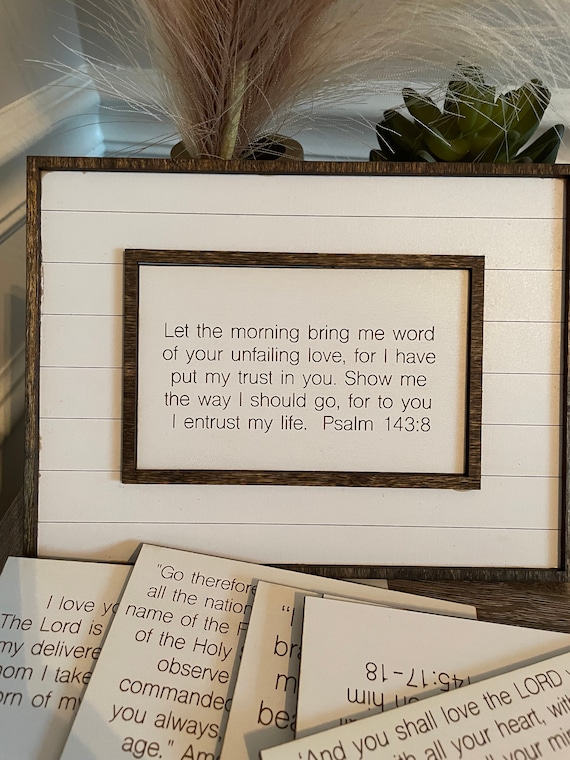 Let the morning bring me word
of your unfailing love, for I have
put my trust in you. Show me
the way I should go, for to you
I entrust my life. Psalm 143:8
I love
The Lord is
my
I take
of my
"Go therefore
all the
name of the
of the Holy
observe
commanded
you always,
age."
145:17-18
him
"And you shall love the LORD
with all your heart, with
all your